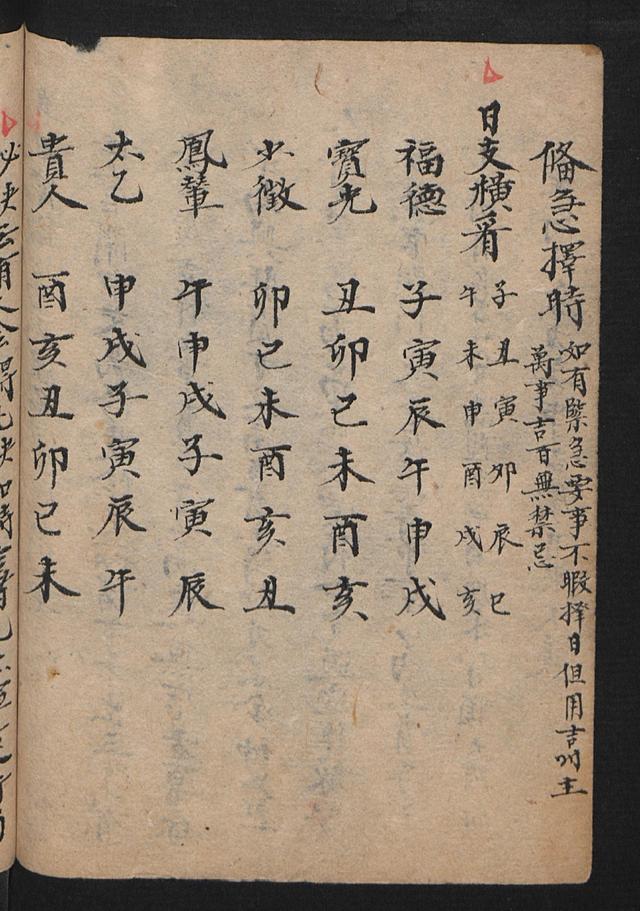 備急擇時
如有緊急要事不暇擇日但用吉時主
萬事吉百無禁忌
日支橫看
子丑寅卯辰巳
午未申酉戌亥
福德 子寅辰午申戌
寶光 丑卯巳未酉亥
少微 卯巳未酉亥丑
鳳輦 午申戌子寅辰
太乙 申戌子寅辰午
貴人 酉亥丑卯巳未